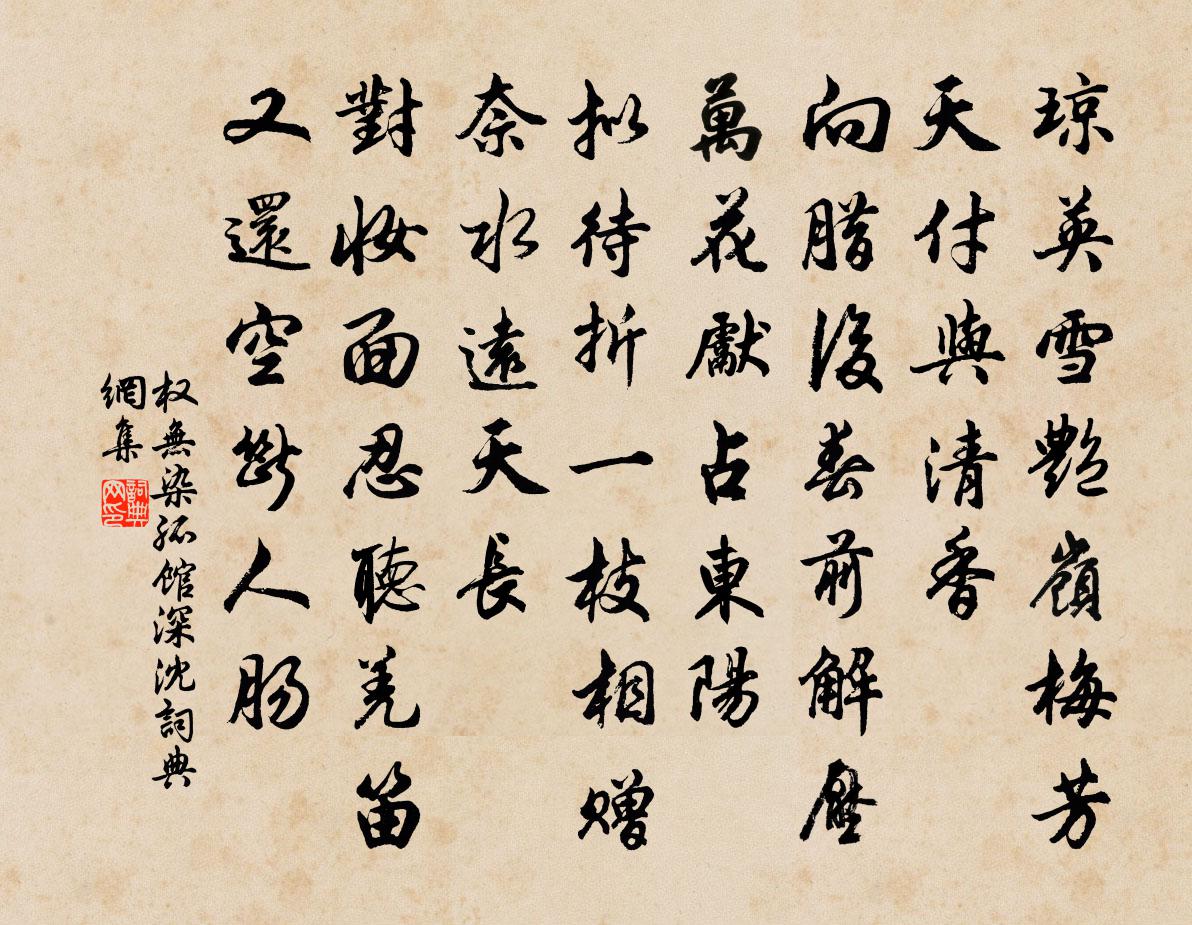 琼英雪艷嶺梅芳
天付與清香
向腊後春前解壓
萬花獻占東陽
拟待折一枝相赠
奈水遠天長
對妝面忍聽羌笛
又還空斷人肠
权無染孤馆深沈詞典
網集
詞典
网印